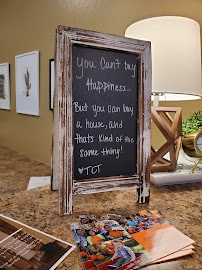 you can't buy
Happiness...
But you can buy
a house, and
that's kind of the
same thing!
♥TCT